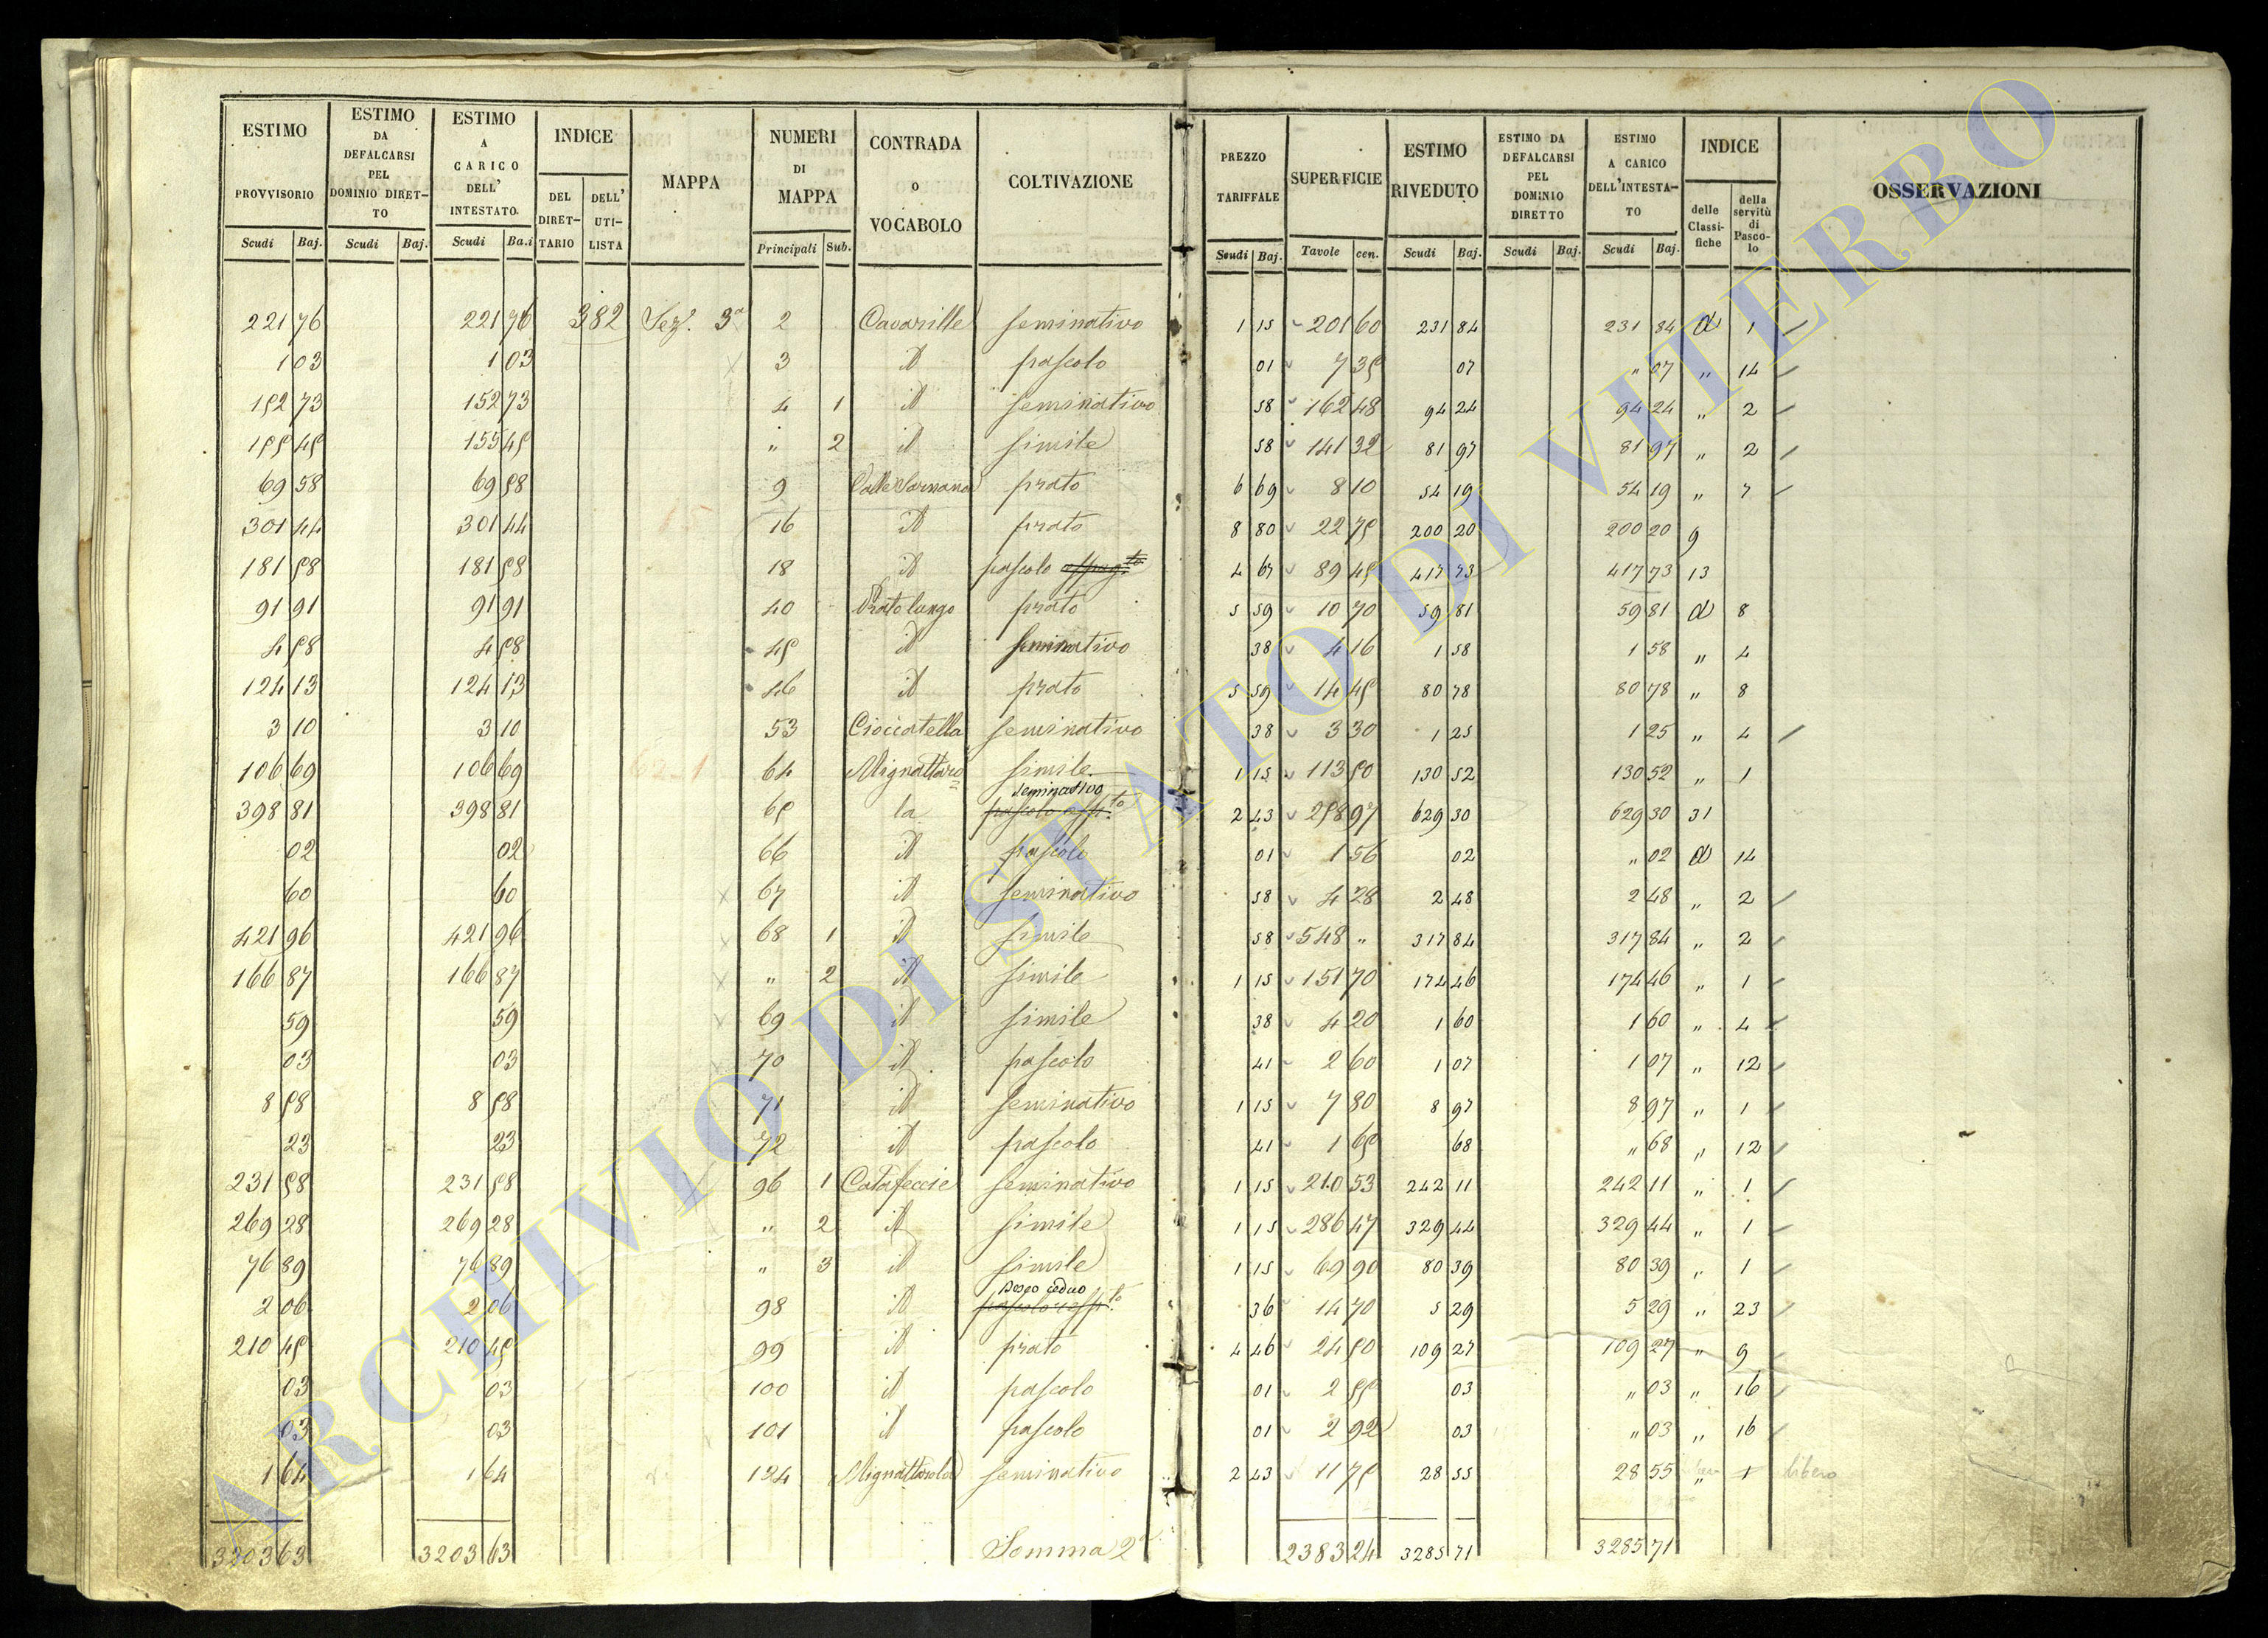 ESTIMO PROVVISORIO Scudi Baj.
ESTIMO DA DEFALCARSI PEL DOMINIO DIRET-TO Scudi Baj.
ESTIMO A CARICO DELL' INTESTATO Scudi Ba.i
INDICE DEL DIRET-TARIO DELL' UTI-LISTA
MAPPA
NUMERI DI MAPPA Principali Sub.
CONTRADA o VOCABOLO
COLTIVAZIONE
PREZZO TARIFFALE Scudi Baj.
SUPERFICIE Tavole cen.
ESTIMO RIVEDUTO Scudi Baj.
ESTIMO DA DEFALCARSI PEL DOMINIO DIRETTO Scudi Baj.
ESTIMO A CARICO DELL'INTESTA-TO Scudi Baj.
INDICE delle Classi-fiche della servitù di Pasco-lo
OSSERVAZIONI
221 76 221 76 382 Sez. 3a 2 Cavarille seminativo 1 15 201 60 231 84 231 84 a 1
1 03 1 03 3 id pascolo 01 7 35 07 " 07 " 14
152 73 152 73 4 1 id seminativo 58 162 48 94 24 94 24 " 2
155 45 155 45 " 2 id simile 58 141 32 81 97 81 97 " 2
69 58 69 58 9 prato 6 69 8 10 54 19 54 19 " 7
301 44 301 44 16 id prato 8 80 22 75 200 20 200 20 9
181 58 181 58 18 id pascolo 4 67 89 45 417 73 417 73 13
91 91 91 91 40 Prato lungo prato 5 59 10 70 59 81 59 81 a 8
4 58 4 58 45 id seminativo 38 4 16 1 58 1 58 " 4
124 13 124 13 46 id prato 5 59 14 45 80 78 80 78 " 8
3 10 3 10 53 Cioccatella seminativo 38 3 30 1 25 1 25 " 4
106 69 106 69 64 Mignattara simile 1 15 113 50 130 52 130 52 " 1
398 81 398 81 65 la pascolo app.to seminativo 2 43 258 97 629 30 629 30 31
02 02 66 id pascolo 01 1 56 02 " 02 a 14
60 60 67 id seminativo 58 4 28 2 48 2 48 " 2
421 96 421 96 68 1 id simile 58 548 " 317 84 317 84 " 2
166 87 166 87 " 2 id simile 1 15 151 70 174 46 174 46 " 1
59 59 69 id simile 38 4 20 1 60 1 60 " 4
03 03 70 id pascolo 41 2 60 1 07 1 07 " 12
8 58 8 58 71 id seminativo 1 15 7 80 8 97 8 97 " 1
23 23 72 id pascolo 41 1 65 68 " 68 " 12
231 58 231 58 96 1 Catafeccie seminativo 1 15 210 53 242 11 242 11 " 1
269 28 269 28 " 2 id simile 1 15 286 47 329 44 329 44 " 1
76 89 76 89 " 3 id simile 1 15 69 90 80 39 80 39 " 1
2 06 2 06 98 id bosco ceduo 36 14 70 5 29 5 29 " 23
210 45 210 45 99 id prato 4 46 24 50 109 27 109 27 " 9
03 03 100 id pascolo 01 2 55 03 " 03 " 16
03 03 101 id pascolo 01 2 92 03 " 03 " 16
1 64 1 64 124 Mignattarola seminativo 2 43 11 75 28 55 28 55 " 1 libero
3203 63 3203 63 Somma 2a 2383 24 3285 71 3285 71
ARCHIVIO DI STATO DI VITERBO